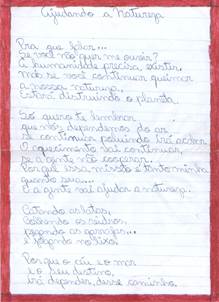 Ajudando a Natureza
Pra que falar...
Se você não quer me ouvir?
A humanidade precisa existir,
mas se você continuar queimar
a nossa natureza,
Estará destruindo o planeta.
Só quero te lembrar
que nós dependemos do ar
Se continuar poluindo irá acabar
O aquecimento vai continuar,
se a gente não cooperar.
Porque essa missão é tanto minha
quanto sua...
E a gente vai ajudar a natureza.
Catando as latas,
Colhendo os vidros,
pegando as garrafas...
e jogando no lixo!
Porque o céu e o mar
e o seu destino,
irá depender desse caminho.